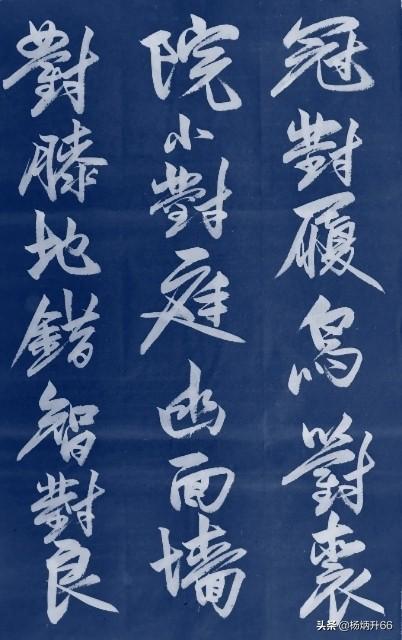 冠對履舄對裘
院小對庭幽面墙
對膝地錯智對良
头条 @杨炳升66